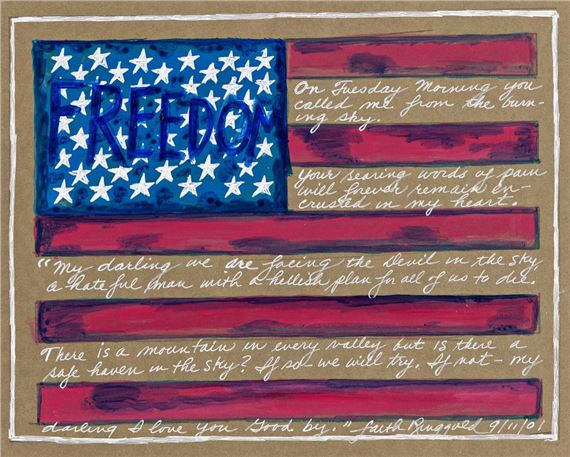 FREEDOM
On Tuesday Morning you
called me from the burn-
ing sky.
Your searing words of pain
will forever remain en-
crusted in my heart.
"My darling we are facing the Devil in the sky,
a hateful man with a hellish plan for all of us to die.
There is a mountain in every valley but is there a
safe haven in the sky? If so we will try. If not - my
darling I love you Good by." Faith Ringgold 9/11/01